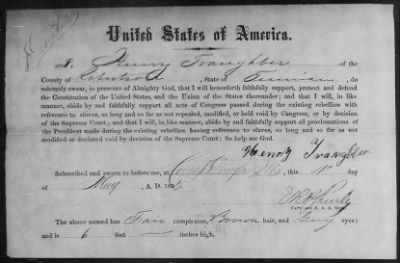 United States of America.
I, Henry Traughber of the
County of Robertson, State of Tennessee, do
solemnly swear, in presence of Almighty God, that I will henceforth faithfully support, protect and defend
the Constitution of the United States, and the Union of the States thereunder; and that I will, in like
manner, abide by and faithfully support all acts of Congress passed during the existing rebellion with
reference to slaves, so long and so far as not repealed, modified, or held void by Congress, or by decision
of the Supreme Court; and that I will, in like manner, abide by and faithfully support all proclamations of
the President made during the existing rebellion having reference to slaves, so long and so far as not
modified or declared void by decision of the Supreme Court. So help me God.
Henry Traughber
Subscribed and sworn to before me, at day
of May A, D. 186
The above named has Fair complexion, Brown hair, and Grey eyes;
and is 6 feet — inches high.